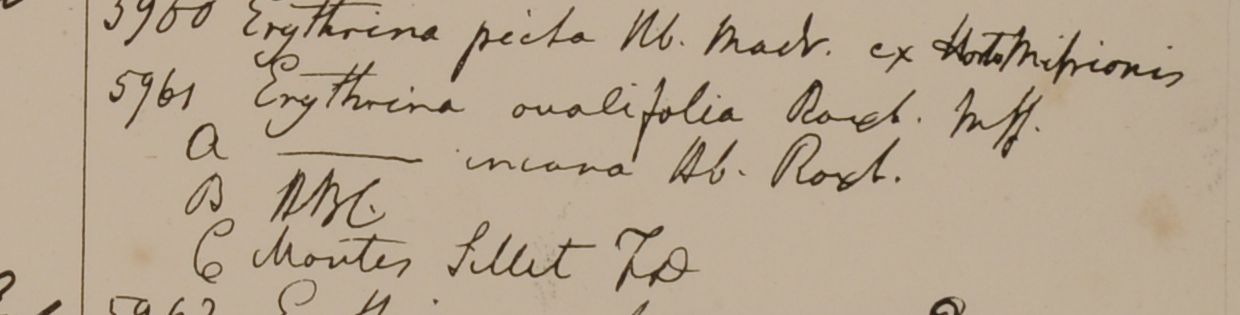 5960 Erythrina picta Hb. Madr. ex Horto Missionis
5961 Erythrina ovalifolia Roxb. Mss.
A ——— incana Hb. Roxb.
B HBC.
C Montes Sillet FD
5962